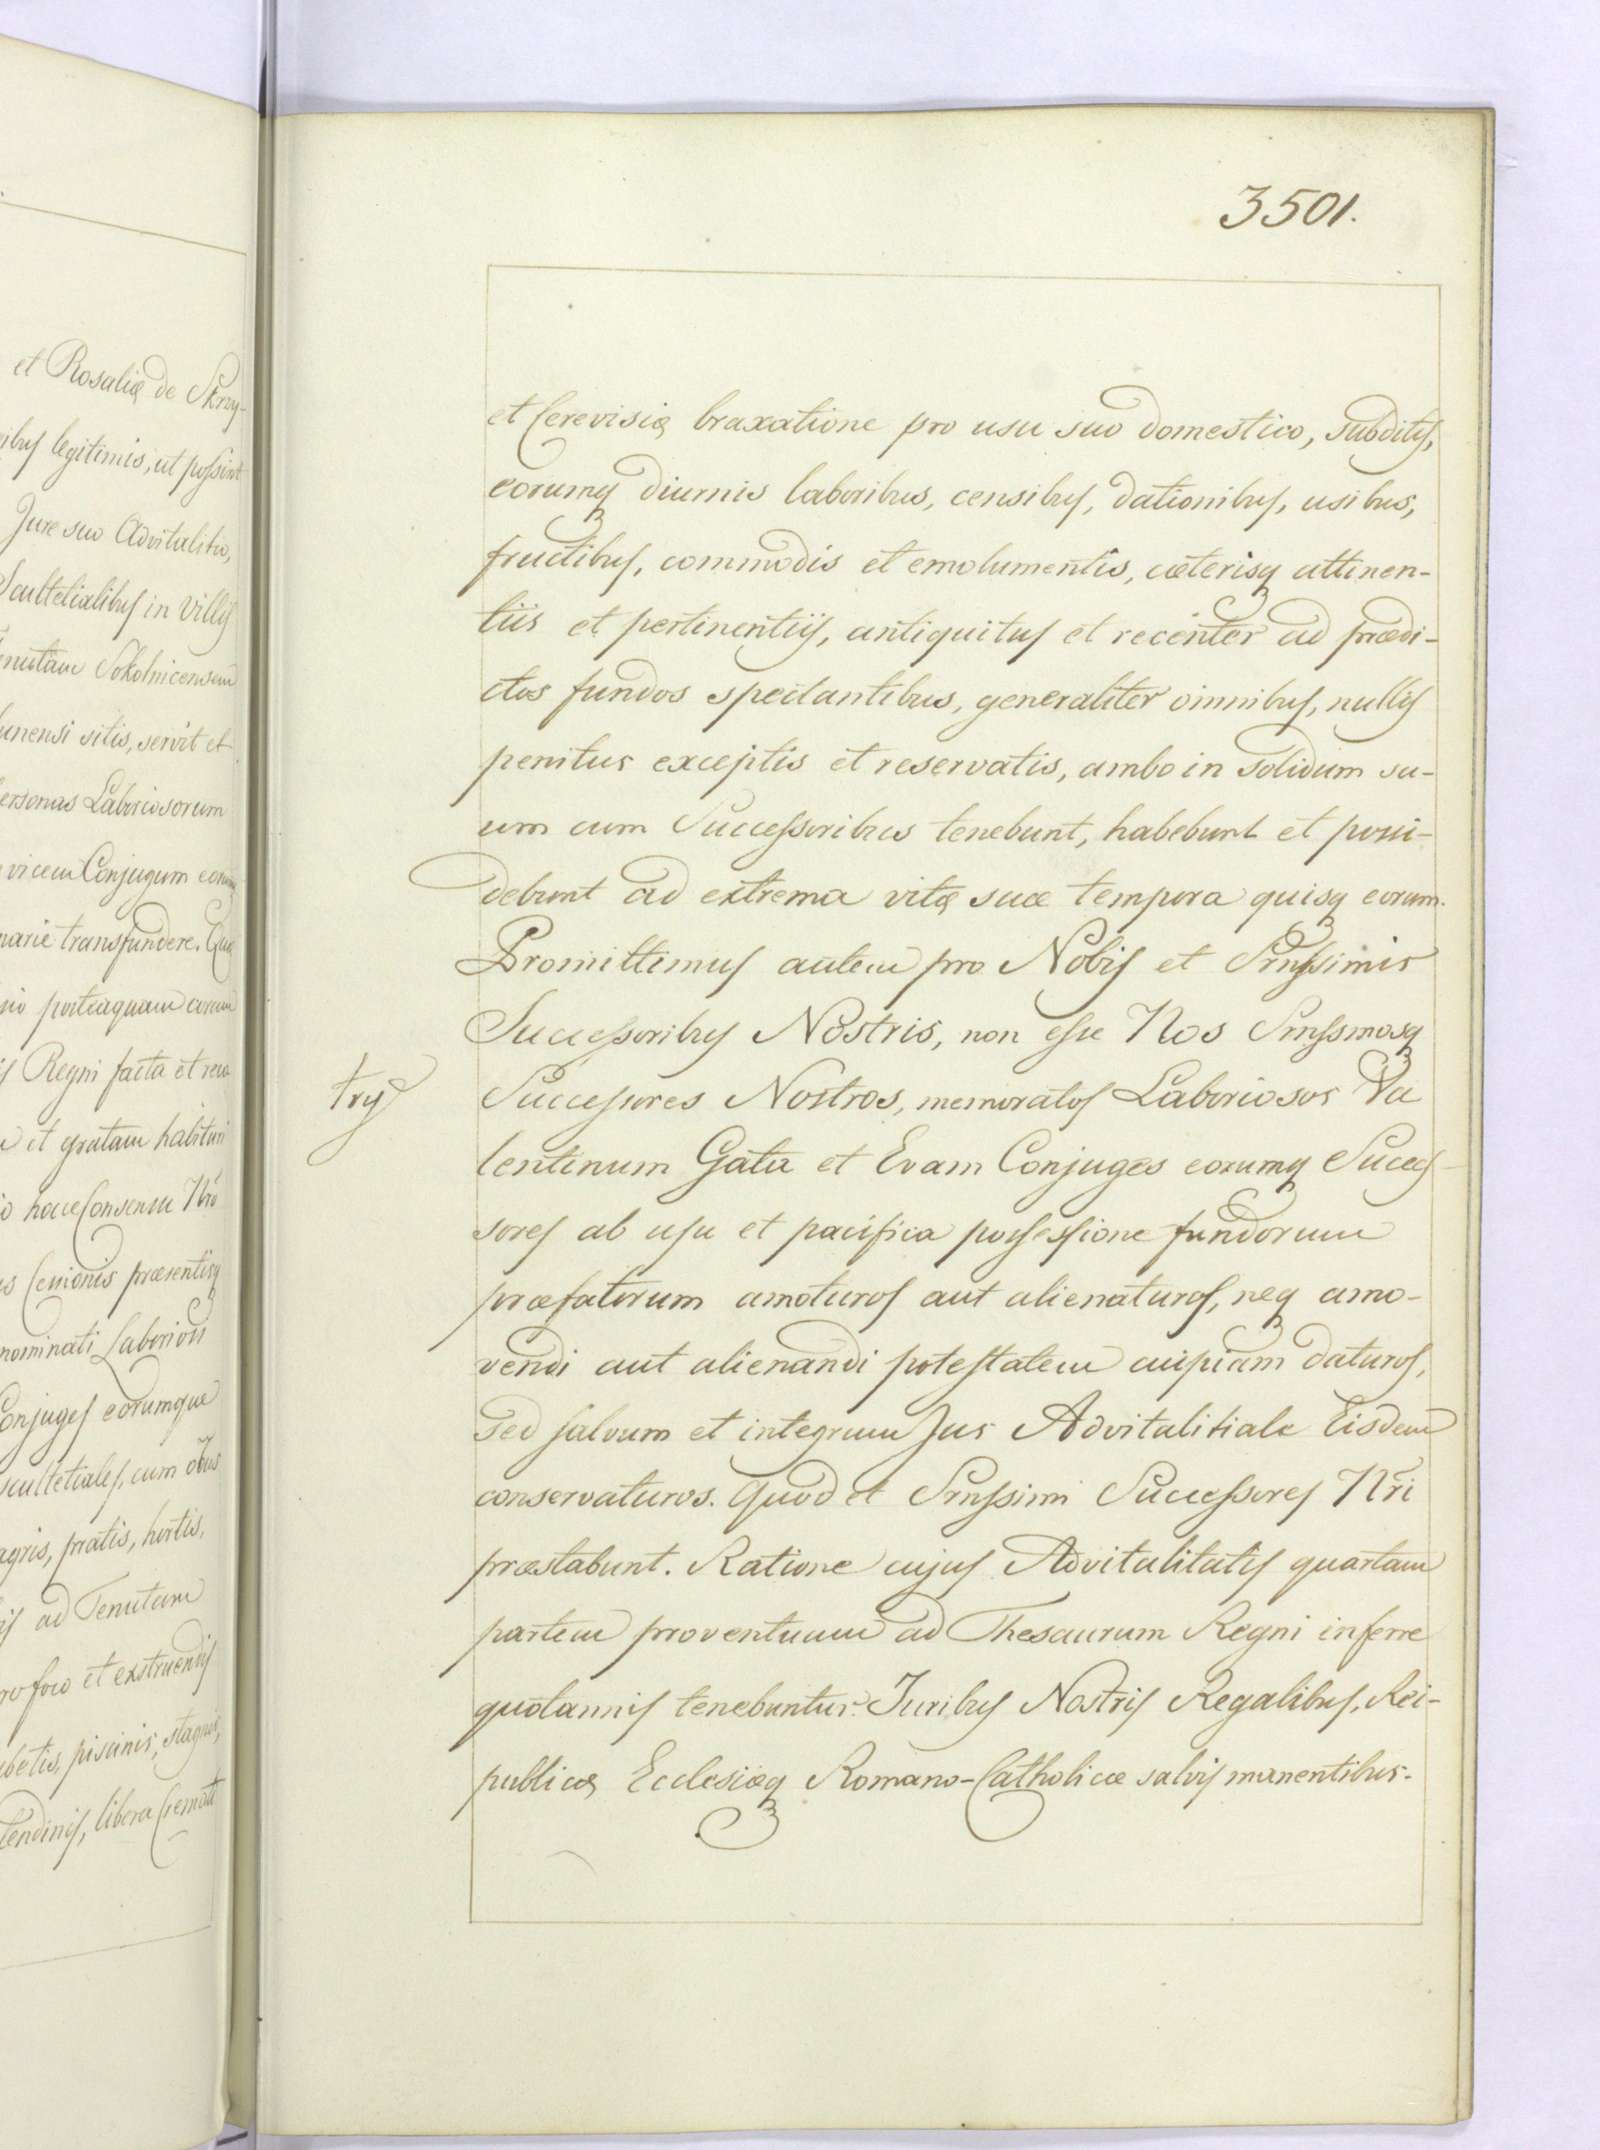 et Rosaliæ de Skrzy-
ibus legitimis, ut possint
Jure suo Advitalitio,
Scultetialibus in Villis
enutam Sokolnicensem
unensi sitis, servit et
ersonas Laboriosorum
vicem Conjugum eorumq
narie transfundere. Qua
nio posteaquam coram
is Regni facta et reco
m et gratam habituri
o hocce Consensu Nro
us Cessionis præsentisq
nominati Laboriosi
Conjuges eorumque
scultetiales, cum oĩbus
agris, pratis, hortis,
is ad Tenutam
ro foco et exstruendis
ubetis, piscinis, stagnis,
lendinis, libera Cremati
3501.
et Cerevisiæ braxatione pro usu suo domestico, subditis,
eorumq diurnis laboribus, censibus, dationibus, usibus,
fructibus, commodis et emolumentis, cæterisq attinen-
tiis et pertinentiis, antiquitus et recenter ad prædi-
ctos fundos spectantibus, generaliter omnibus, nullis
penitus exceptis et reservatis, ambo in solidum su-
um cum Successoribus tenebunt, habebunt et possi-
debunt ad extrema vitæ suæ tempora quisq eorum.
Promittimus autem pro Nobis et Srnssimis
Successoribus Nostris, non esse Nos Srnssmosq
try
Successores Nostros, memoratos Laboriosos Va
lentinum Gata et Evam Conjuges eorumq Succes-
sores ab usu et pacifica possessione fundorum
præfatorum amoturos aut alienaturos, neq amo-
vendi aut alienandi potestatem cuipiam daturos,
sed salvum et integrum Jus Advitalitiale Eisdem
conservaturos. Quod et Srnssimi Successores Nri
præstabunt. Ratione cujus Advitalitatis quartam
partem proventuum ad Thesaurum Regni inferre
quotannis tenebuntur. Juribus Nostris Regalibus, Rei-
publicæ Ecclesiæq Romano-Catholicæ salvis manentibus.